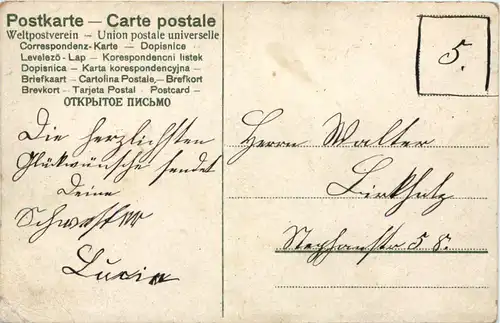 Postkarte — Carte postale
Weltpostverein — Union postale universelle
Correspondenz-Karte — Dopisnice
Levelező-Lap — Korespondencni listek
Dopisnica — Karta korespondencyjna —
Briefkaart — Cartolina Postale, — Brefkort
Brevkort — Tarjeta Postal — Postcard —
ОТКРЫТОЕ ПИСЬМО
5.
Die herzlichsten
Glückwünsche sendet
Deine
Schwester
Lucie
Herrn Walter
Birkholz
Stephanstr 58.